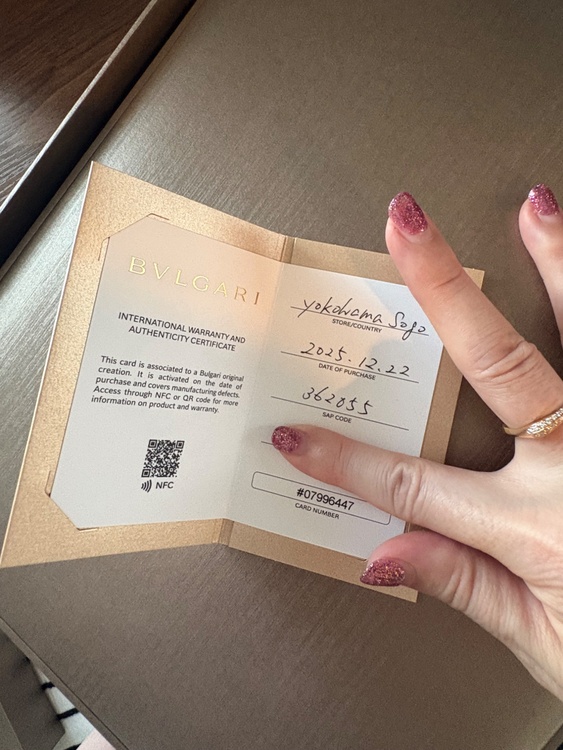 BVLGARI
INTERNATIONAL WARRANTY AND
AUTHENTICITY CERTIFICATE
This card is associated to a Bulgari original
creation. It is activated on the date of
purchase and covers manufacturing defects.
Access through NFC or QR code for more
information on product and warranty.
NFC
yokohama Sogo
STORE/COUNTRY
2025.12.22
DATE OF PURCHASE
362055
SAP CODE
#07996447
CARD NUMBER